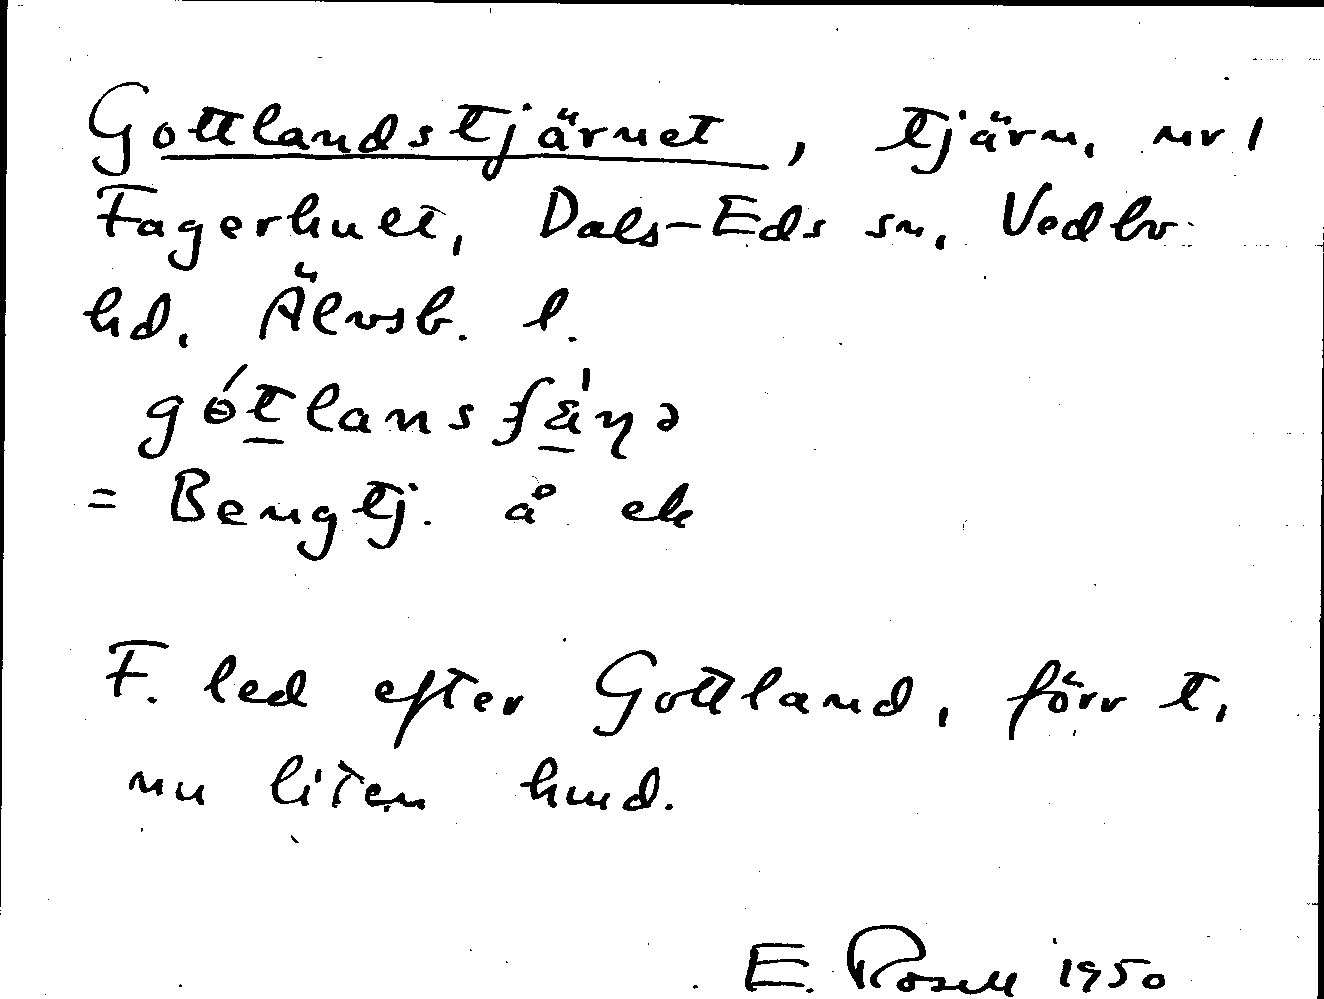 Gottlandstjärnet, tjärn, nr 1
Fagerhult, Dals-Eds sn, Vedbo
hd, Älvsb. l.
gótlansʃä̀ṇə
= Bengtj. å ek
F. led efter Gottland, förr t,
nu liten hmd.
E. Rosell 1950